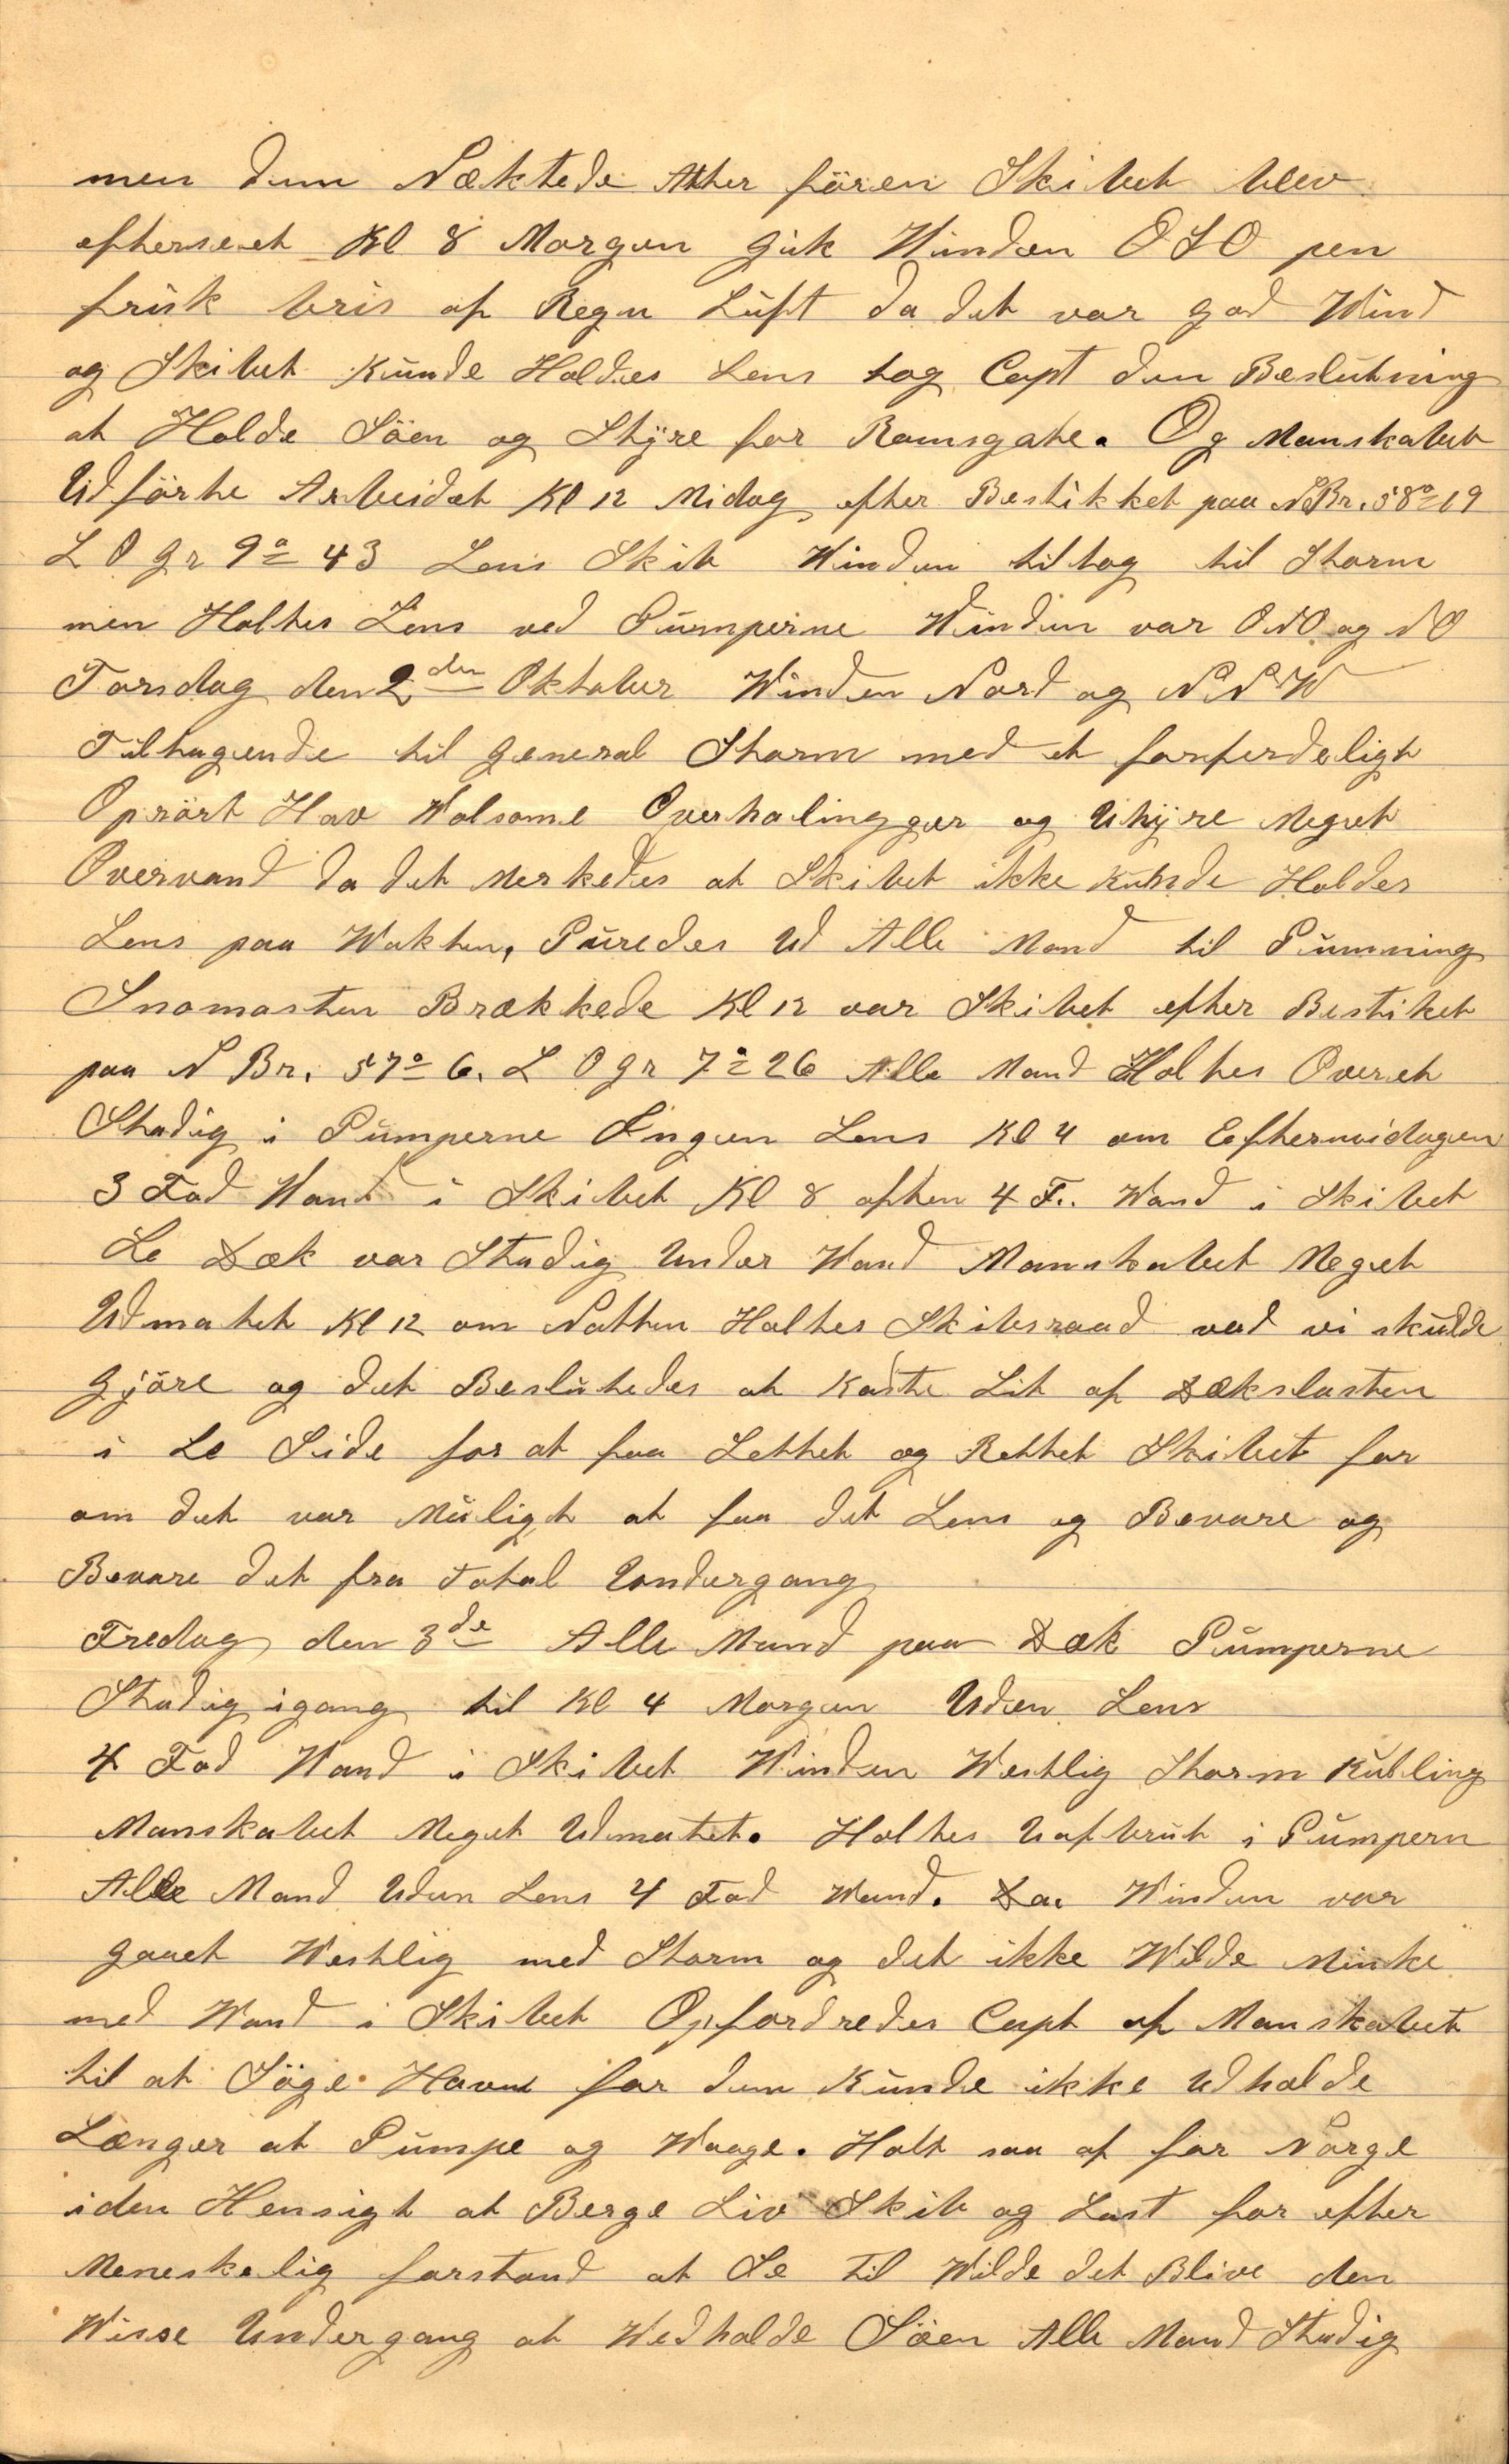 men dem Næktede Atter fören Skibet blev
efterseet Kl 8 Morgen gik Winden OSO pen
frisk bris af Regn Luft da det var god Wind
og Skibet Kunde Holdes Lens tog Capt den Beslutning
at Holde Söen og Styre for Ramsgate. Og Manskabet
Udförte Arbeidet Kl 12 Midag efter Bestikket paa N Br. 58° 19
L O gr 9° 43 Lens Skib Winden tiltog til Storm
men Holtes Lens ved Pumperne Winden var ONO og NO
Torsdag den 2den Oktober Winden Nord og N.N.W
Tiltagende til General Storm med et forferdeligt
Oprört Hav Wolsome Overhalingger og Uhyre Meget
Overvand da det Merkedes at Skibet ikke Kunde Holdes
Lens paa Wakten, Puredes Ud Alle Mand til Pumning
Snomasten Brækkede Kl 12 var Skibet efter Bestiket
paa N Br. 57° 6. L O gr 7° 26 Alle Mand Holtes Overet
Stadig i Pumperne Ingen Lens Kl 4 om Eftermidagen
3 Fod Wand i Skibet Kl 8 aften 4 F.. Wand i Skibet
Le Dæk var Stadig Under Wand Manskabet Meget
Udmatet Kl 12 om Natten Holtes Skibsraad vad vi skulde
gjöre og det Beslutedes at Kaste Lit af Dækslasten
i Le Side for at faa Lettet og Rettet Skibet for
om det var Muligt at faa det Lens og Bevare og
Bevare det fra Total Undergang
Fredag den 3de Alle Mand paa Dæk Pumperne
Stadig igang til Kl 4 Morgen Uden Lens
4 Fod Wand i Skibet Winden Westlig Storm Kubling
Manskabet Meget Udmatet. Holtes Uafbrut i Pumpern
Alle Mand Uden Lens 4 Fod Wand. Da Winden var
gaaet Westlig med Storm og det ikke Wilde Minke
med Wand i Skibet Opfordredes Capt af Manskabet
til at Söge Havn for dem Kunde ikke Udholde
Længer at Pumpe og Waage. Holt saa af for Norge
iden Hensigt at Berge Liv Skib og Last for efter
Meneskelig forstand at Se til Wilde det Blive den
Wisse Undergang at Wedholde Söen Alle Mand Stadig